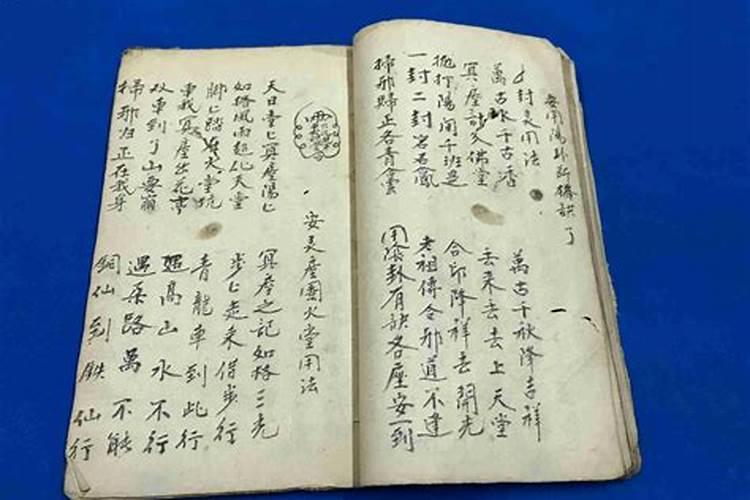 安用陽卦断橋訣了
封灵用法
萬古千古通
冥座訣入佛堂
陽間千班是
一封二封名名
掃邪歸正各青雲
萬古千秋降吉祥
去来去去上天堂
合卯降祥去開光
老祖傳令邪道不逢
用陽卦有訣各座安一到
安灵座團火堂用法
天日堂匕冥座陽匕
如格風雨超化天堂
脚匕踏火堂坑
車我冥座出花亭
双車到了山要崩
掃邪归正在我身
冥座之记如格三光
步匕走来借步行
青龍車到此行
遇高山水不行
遇来路萬不能
铜仙到鉄仙行